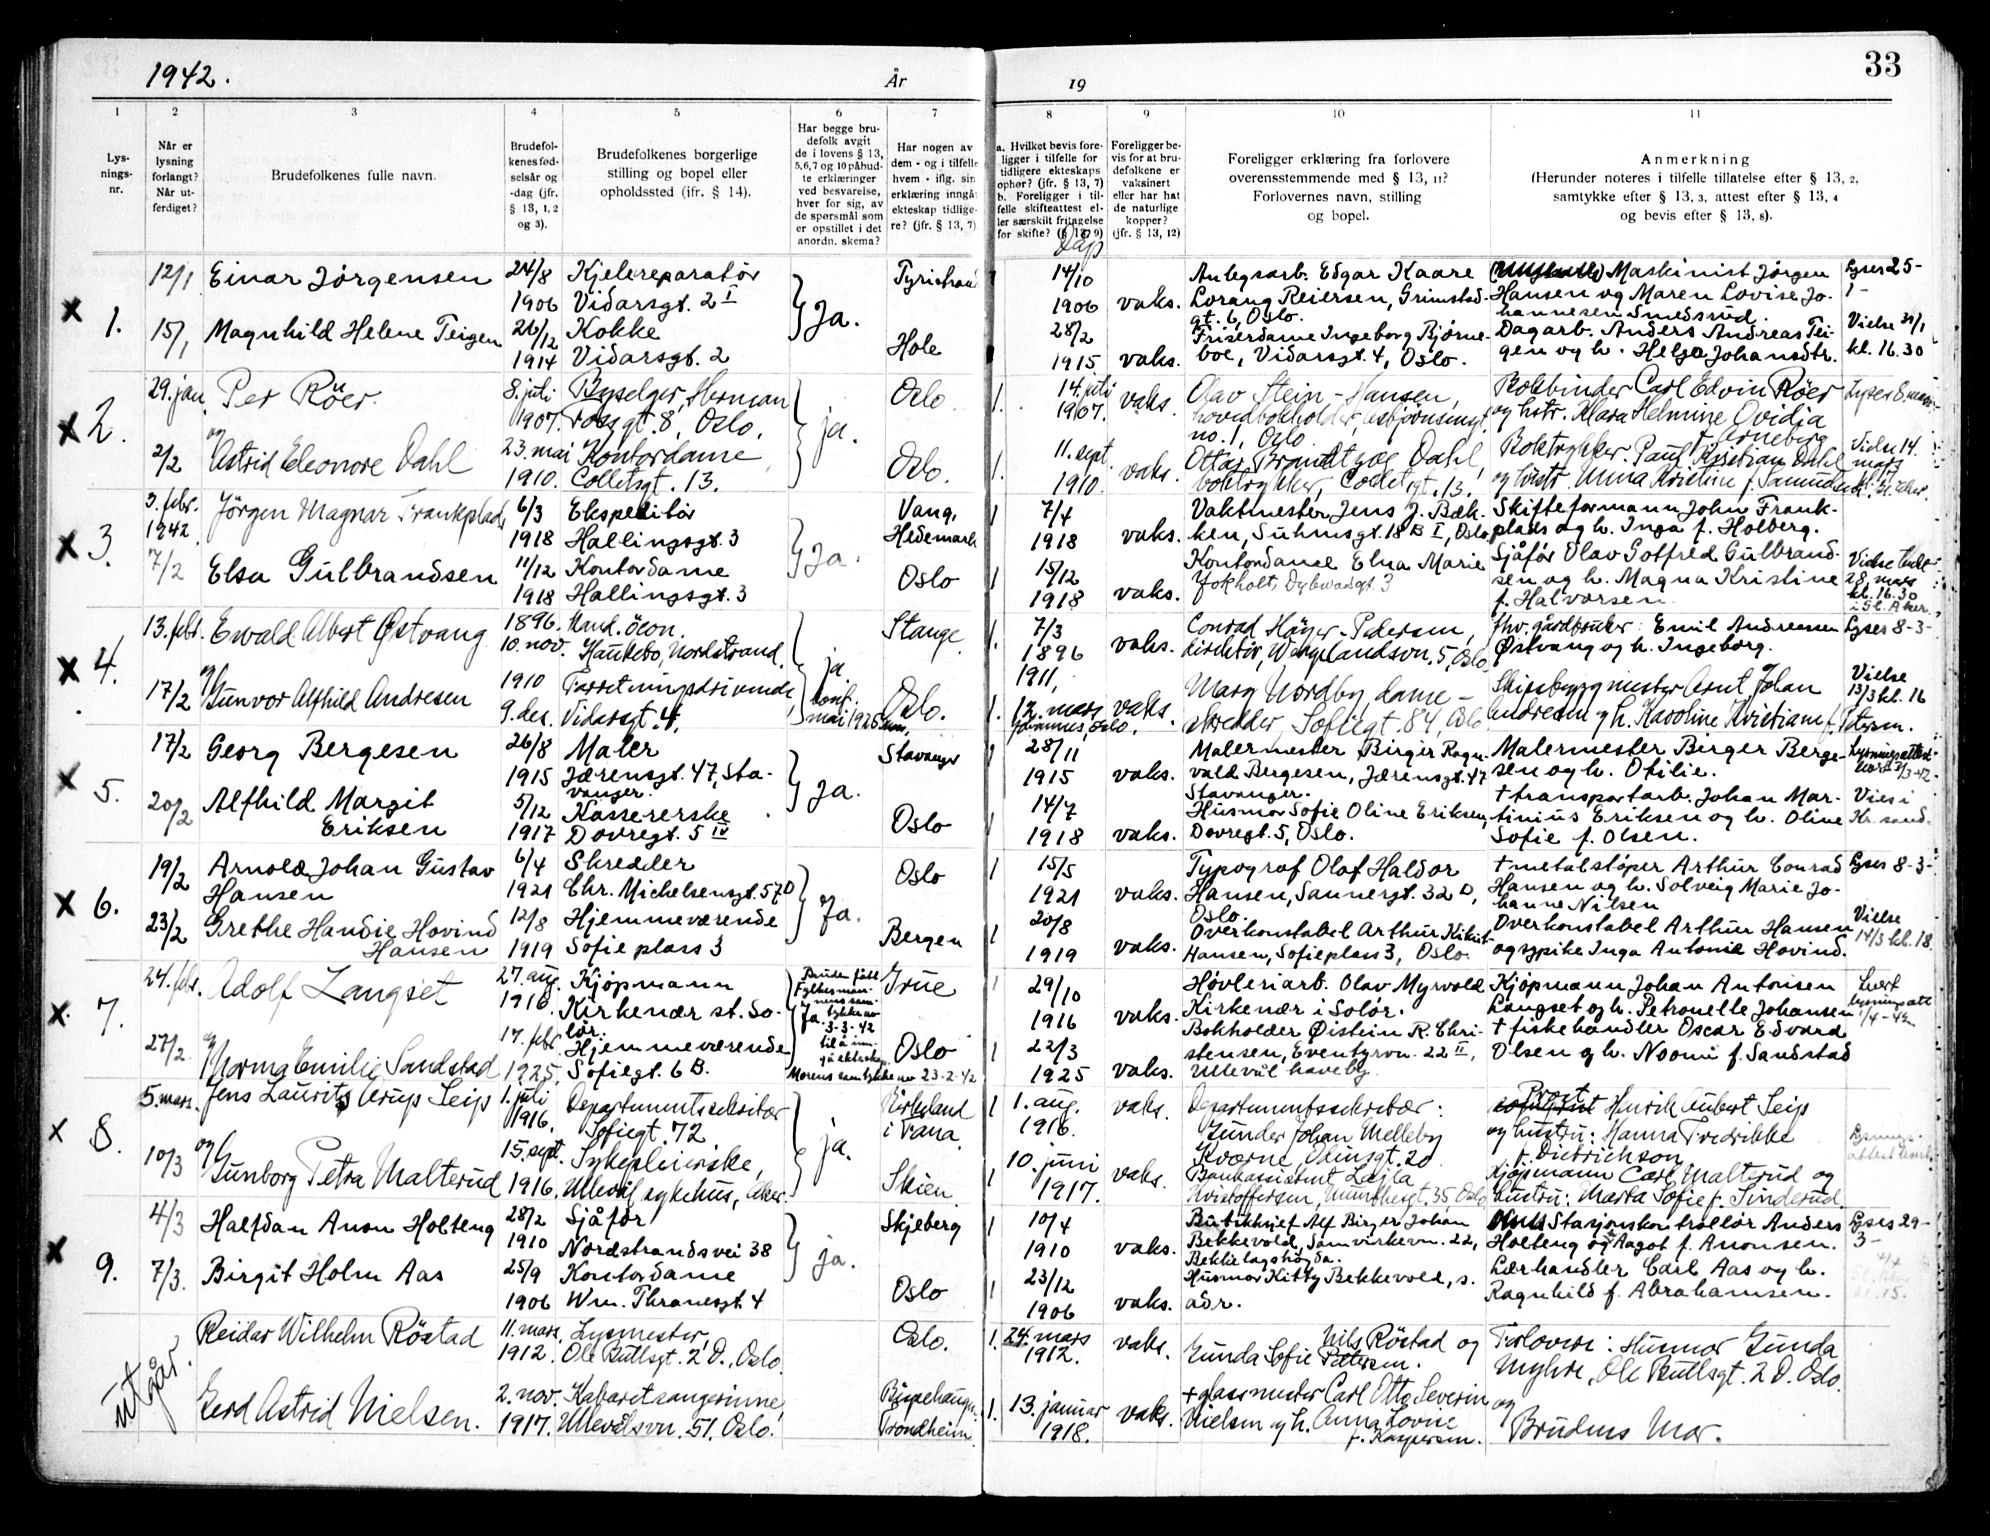 1942.
År
19
33
1
2
3
4
5
6
7
8
9
10
11
Lys-
nings-
nr.
Når er
lysning
forlangt?
Når ut-
ferdiget?
Brudefolkenes fulle navn.
Brudefol-
kenes fød-
selsår og
-dag (jfr.
§ 13, 1, 2
og 3).
Brudefolkenes borgerlige
stilling og bopel eller
opholdssted (ifr. § 14).
Har begge bru-
defolk avgit
de i lovens § 13,
5, 6, 7 og 10 påbud-
te erklæringer
ved besvarelse,
hver for sig, av
de spørsmål som
er opstillet i det
anordn. skema?
Har nogen av
dem - og i tilfelle
hvem - iflg. sin
erklæring inngåt
ekteskap tidlige-
re? (jfr. § 13, 7)
a. Hvilket bevis fore-
ligger i tilfelle for
tidligere ekteskaps
ophør? (jfr. § 13, 7)
b. Foreligger i til-
felle skifteattest el-
ler særskilt fritagelse
for skifte? (§ 13, 9)
Dåp
Foreligger be-
vis for at bru-
defolkene er
vaksinert
eller har hat
de naturlige
kopper?
(jfr. § 13, 12)
Foreligger erklæring fra forlovere
overensstemmende med § 13, 11?
Forlovernes navn, stilling
og bopel.
Anmerkning
(Herunder noteres i tilfelle tillatelse efter § 13, 2,
samtykke efter § 13, 3, attest efter § 13, 4
og bevis efter § 13, 8).
x 1.
12/1 Einar Jørgensen 24/8 Kjelereparatør Tyristrand 14/10 Anlegsarb. Edgar Kaare Maskinist Jørgen Lyses 25-
1906 Vidarsgt. 2 I Ja. 1906 vaks. Lorang Reiersen, Grimstad- Hansen og Maren Lovise Jo- 1-
gt. 6, Oslo. hannesen Smedsrud.
15/1 Magnhild Helene Teigen 26/12 Kokke Hole 28/2 Frisérdame Ingeborg Bjørne- Dagarb. Anders Andreas Tei- Vielse 31/1
1914 Vidarsgt. 2 1915 vaks. boe, Vidarsgt. 4, Oslo. gen og h. Helga Johansdtr. kl. 16.30
x 2.
29. jan. Per Röer. 8. juli Byselger, Herman Oslo 1. 14. juli vaks. Olav Stein-Hansen, Bokbinder Carl Edvin Röer Lyses 8. mars
1907. Fossgt. 8, Oslo. ja. 1907. hovedbokholder, Asbjørnsensgt. og hstr. Klara Helmine Ovidia
og no. 1, Oslo f. Arneberg
2/2 Astrid Eleonore Dahl 23. mai Kontordame, Oslo. 1. 11. sept. vaks. Ottar Brandtzæg Dahl, Boktrykker Paul Kristian Dahl Vielse 14. mars
1910. Colletsgt. 13. 1910. boktrykker, Colletsgt. 13. og hustr. Anna Kristine f. Samuelsen
x 3.
3. febr. Jörgen Magnar Frankplads 6/3 Ekspeditør Vang, 7/4 Vaktmester Jens J. Bæk- Skifteformann John Frank-
1942 1918 Hallingsgt. 3 Ja. Hedemark 1918 vaks. ken, Suhmsgt. 18 B I, Oslo plads og h. Inga f. Holberg.
7/2 Elsa Gulbrandsen 11/12 Kontordame Oslo 15/12 Kontordame Elna Marie Sjåfør Olav Gotfred Gulbrand- Vielse
1918 Hallingsgt. 3 1918 vaks. Fokholt, Dybwadsgt. 3 sen og h. Magna Kristine 28. mars
f. Halvorsen kl. 16.30
i Gl. Aker.
x 4.
13. febr. Ewald Albert Østvang 1896. Kand. öcon. Stange 1. 7/3 Conrad Höyer-Pedersen, fhv. gårdbruker: Emil Andreassen Lyses 8-3-
10. nov. Haukebo, Nordstrand. ja. 1896 vaks. direktør, Wergelandsvn. 5, Oslo. Østvang og h. Ingeborg.
og 1911,
17/2 Gunvor Alfhild Andresen 1910 Forretningsdrivende, Oslo. 1. 12. mars vaks. Marg Nordby, dame- Skipsbyggmester Arnt Johan Vielse
9. des. Vidarsgt. 4, konf. mai 1926 Johannes, Oslo. skredder, Sofiegt. 84, Oslo Andresen og h. Karoline Kristiane f. Petersen. 13/3 kl. 16
x 5.
17/2 Georg Bergesen 26/8 Maler Stavanger 28/11 Malermester Birger Ragn- Malermester Birger Berge- Lysningsattest
1915 Jærensgt. 47, Sta- Ja. 1915 vaks. vald Bergesen, Jærensgt. 47 sen og h. Otilie.
vanger. Stavanger.
20/2 Alfhild Margit 5/12 Kassererske Oslo 14/7 Husmor Sofie Oline Eriksen, + transportarb. Johan Mar- Vies i
Eriksen 1917 Dovregt. 5 IV 1918 vaks. Dovregt. 5, Oslo. tinius Eriksen og h. Oline Kr. sand.
Sofie f. Olsen.
x 6.
19/2 Arnold Johan Gustav 6/4 Skredder Oslo 15/5 Typograf Olaf Haldor + metalstøper Arthur Conrad Lyses 8-3-
Hansen 1921 Chr. Michelsensgt. 57 D Ja. 1921 vaks. Hansen, Sannergt. 32 D, Hansen og h. Solveig Marie Jo-
Oslo. hanne Nilsen
23/2 Grethe Handie Hovind 12/8 Hjemmeværende Bergen 20/8 Overkonstabel Arthur Kikut Overkonstabel Arthur Hansen Vielse
Hansen 1919 Sofie plass 3 1919 vaks. Hansen, Sofieplass 3, Oslo. og spike Inga Antonie Hovind. 14/3 kl. 18
x 7.
24. febr. Adolf Langset 27. aug. Kjøpmann Grue 29/10 Høvleriarb. Olav Myrvold Kjöpmann Johan Antonsen
1916. Kirkenær st. So- Ja. 1916 vaks. Kirkenær i Solør. Langset og h. Petronelle Johansen
lør.
Bruden fått Fylkesman-
3-3-42
og
27/2 Norma Emilie Sandstad 17. febr. Hjemmeværende Oslo 22/3 Bokholder Øistein R. Chri- + fiskehandler Oscar Edvard 1/4-42
1925. Sofiegt. 6 B. 1925 vaks. stensen, Eventyrvn. 22 II, Olsen og h. Noomi f. Sandstad
Morens samtykke av 23-2-42 Ullevål haveby.
x 8.
5. mars. Jens Laurits Arup Seip 1. juli Departementssekretær Kirkeland 1. aug. vaks. Departementssekretær: Prost Henrik Aubert Seip
1916. Sofiegt. 72 ja. i Fana. 1916. Gunder Johan Melleby og hustru: Hanna Fredrikke
og Kværne, Odinsgt. 20 f. Dietrichson
10/3 Gunborg Petra Malterud 15. sept. Sykepleierske, Skien. 10. juni vaks. Bankassistent Lajla Kjøpmann Carl Malterud og
1916. Ullevål sykehus, Aker. 1917. Kristoffersen, Munthesgt. 35, Oslo hustru: Marta Sofie f. Sinderud
x 9.
4/3 Halfdan Anon Holteng 28/2 Sjåför Skjeberg 10/4 Butikksjef Alf Birger Johan Stasjonskontrollør Anders Lyses 29-
1910 Nordstrandsvei 38 ja. 1910 vaks. Bekkevold, Samvirkevn. 22, Holteng og Aagot f. Anonsen. 3-
Bekkelagshøgda.
7/3. Birgit Holm Aas 25/9 Kontordame Oslo 23/12 Husmor Kitty Bekkevold, s. Lærhandler Carl Aas og h.
1906 Wm. Thranesgt. 4 1906 vaks. adr. Ragnhild f. Abrahamsen.
utgår.
Reidar Wilhelm Röstad 11. mars. Lysmester, Oslo. 1. 24. mars vaks. Nils Röstad og Forlovere: Husmor Gunda
1912. Ole Bullsgt. 2 D., Oslo 1912. Gunda Sofie Pettersen. Myhre, Ole Bullsgt. 2 D. Oslo.
Gerd Astrid Nielsen. 2. nov. Kabaretsangerinne, Bispehaugen, 1. 13. januar vaks. + glassmester Carl Otto Severin og
1917. Ullevålsvn. 51, Oslo. Trondheim. 1918. Nielsen og h. Anna Lovise Brudens Mor.
f. Kaspersen.